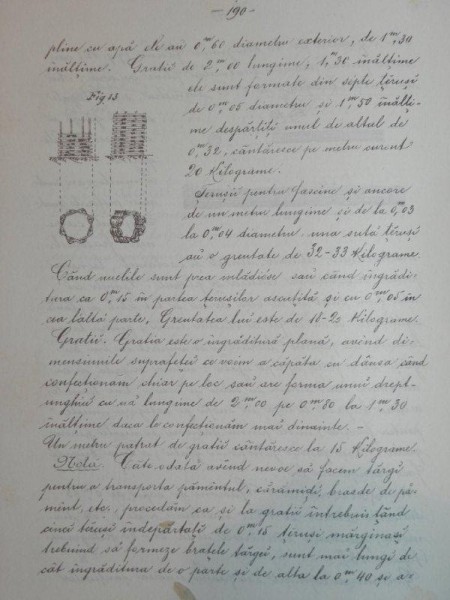 - 190 -
pline cu apă ele au 0,m60 diametru exterior, de 1,m30
înălțime. Gratii de 2,m00 lungime, 1,m30 înălțime
ele sunt formate din șepte țeruși
Fig 13
de 0,m05 diametru și 1,m50 înălți-
me despărțiți unul de altul de
0,m32, cântăresce pe metru curent
20 Kilograme.
Țerușii pentru fascine și ancore
de un metru lungime și de la 0,m03
la 0,m04 diametru una sută țeruși
au o greutate de 32-33 Kilograme
Când nuelile sunt prea mlădióse sau când îngrădi-
tura ca 0,m15 în partea terușilor ascuțită și cu 0,m05 în
cea laltă parte. Greutatea lui este de 18-20 Kilograme.
Gratii. Gratia este o îngrăditură plană, avînd di-
mensiunile suprafeței ce voim a căpăta cu dânsa când
confecționăm chiar pe loc sau are forma unui drept-
unghiu cu uă lungime de 2,m00 pe 0,m80 la 1,m30
înălțime daca le confecționăm mai dinainte. -
Un metru patrat de gratii cântăresce la 15 Kilograme.
Nota. Câte odată avînd nevoe să facem tărgi
pentru a transporta pămîntul, cărămidi, brasde de pă-
mînt, etc, procedăm ca și la gratii întrebuințând
cinci tăruși îndepărtați de 0,m15 terușii mărginași
trebuind să formeze brațele tărgei, sunt mai lungi de
cât îngrăditura de o parte și de alta la 0,m40 și a-